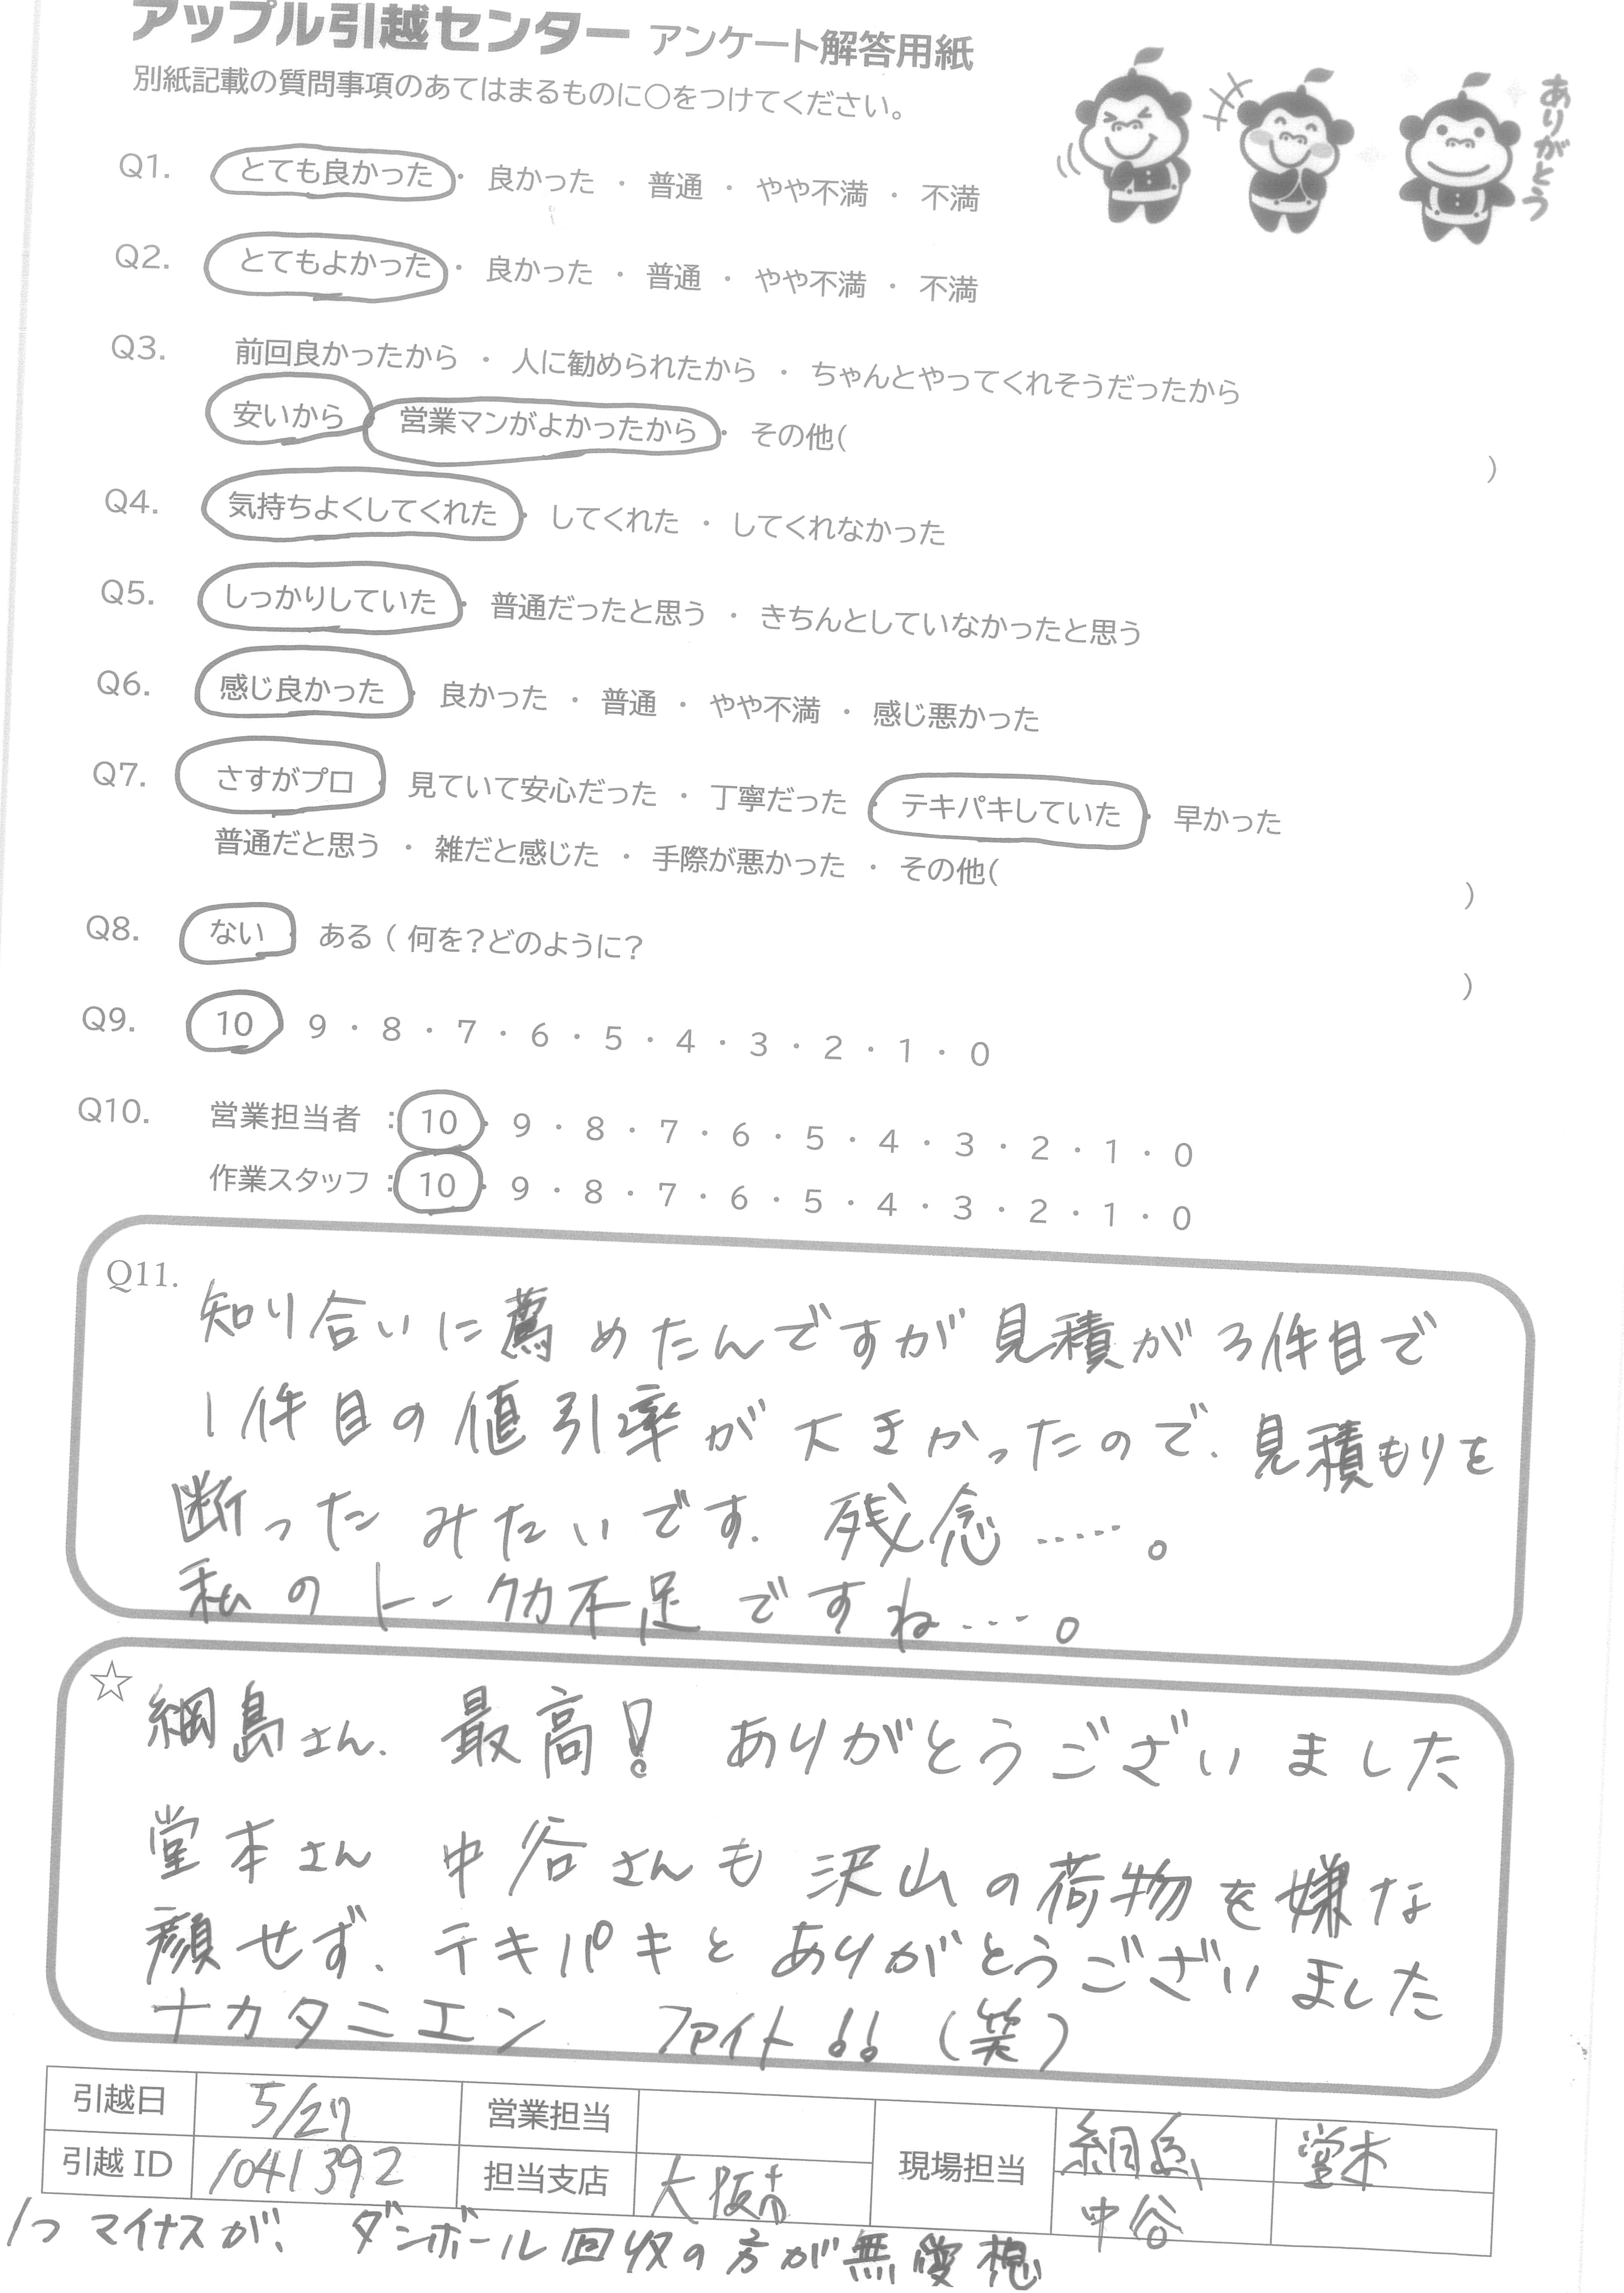 アップル引越センター アンケート解答用紙
別紙記載の質問事項のあてはまるものに○をつけてください。
ありがとう
Q1. とても良かった ・ 良かった ・ 普通 ・ やや不満 ・ 不満
Q2. とてもよかった ・ 良かった ・ 普通 ・ やや不満 ・ 不満
Q3. 前回良かったから ・ 人に勧められたから ・ ちゃんとやってくれそうだったから
安いから ・ 営業マンがよかったから ・ その他( )
Q4. 気持ちよくしてくれた ・ してくれた ・ してくれなかった
Q5. しっかりしていた ・ 普通だったと思う ・ きちんとしていなかったと思う
Q6. 感じ良かった ・ 良かった ・ 普通 ・ やや不満 ・ 感じ悪かった
Q7. さすがプロ ・ 見ていて安心だった ・ 丁寧だった ・ テキパキしていた ・ 早かった
普通だと思う ・ 雑だと感じた ・ 手際が悪かった ・ その他( )
Q8. ない ・ ある ( 何を?どのように? )
Q9. 10 ・ 9 ・ 8 ・ 7 ・ 6 ・ 5 ・ 4 ・ 3 ・ 2 ・ 1 ・ 0
Q10. 営業担当者 : 10 ・ 9 ・ 8 ・ 7 ・ 6 ・ 5 ・ 4 ・ 3 ・ 2 ・ 1 ・ 0
作業スタッフ : 10 ・ 9 ・ 8 ・ 7 ・ 6 ・ 5 ・ 4 ・ 3 ・ 2 ・ 1 ・ 0
Q11. 知り合いに薦めたんですが見積が3件目で
1件目の値引率が大きかったので、見積もりを
断ったみたいです。残念……。
私のトーク力不足ですね…。
☆ 綱島さん、最高! ありがとうございました
堂本さん 中谷さんも沢山の荷物を嫌な
顔せず、テキパキとありがとうございました
ナカタニエン ファイト!!(笑)
引越日 5/27 営業担当 現場担当 綱島 堂本
引越ID 1041392 担当支店 大阪市 中谷
1つマイナスが、ダンボール回収の方が無愛想